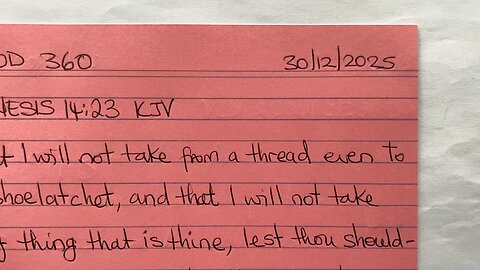 OD 360 30/12/2025
NESIS 14:23 KJV
t I will not take from a thread even to
shoelatchet, and that I will not take
y thing that is thine, lest thou should-